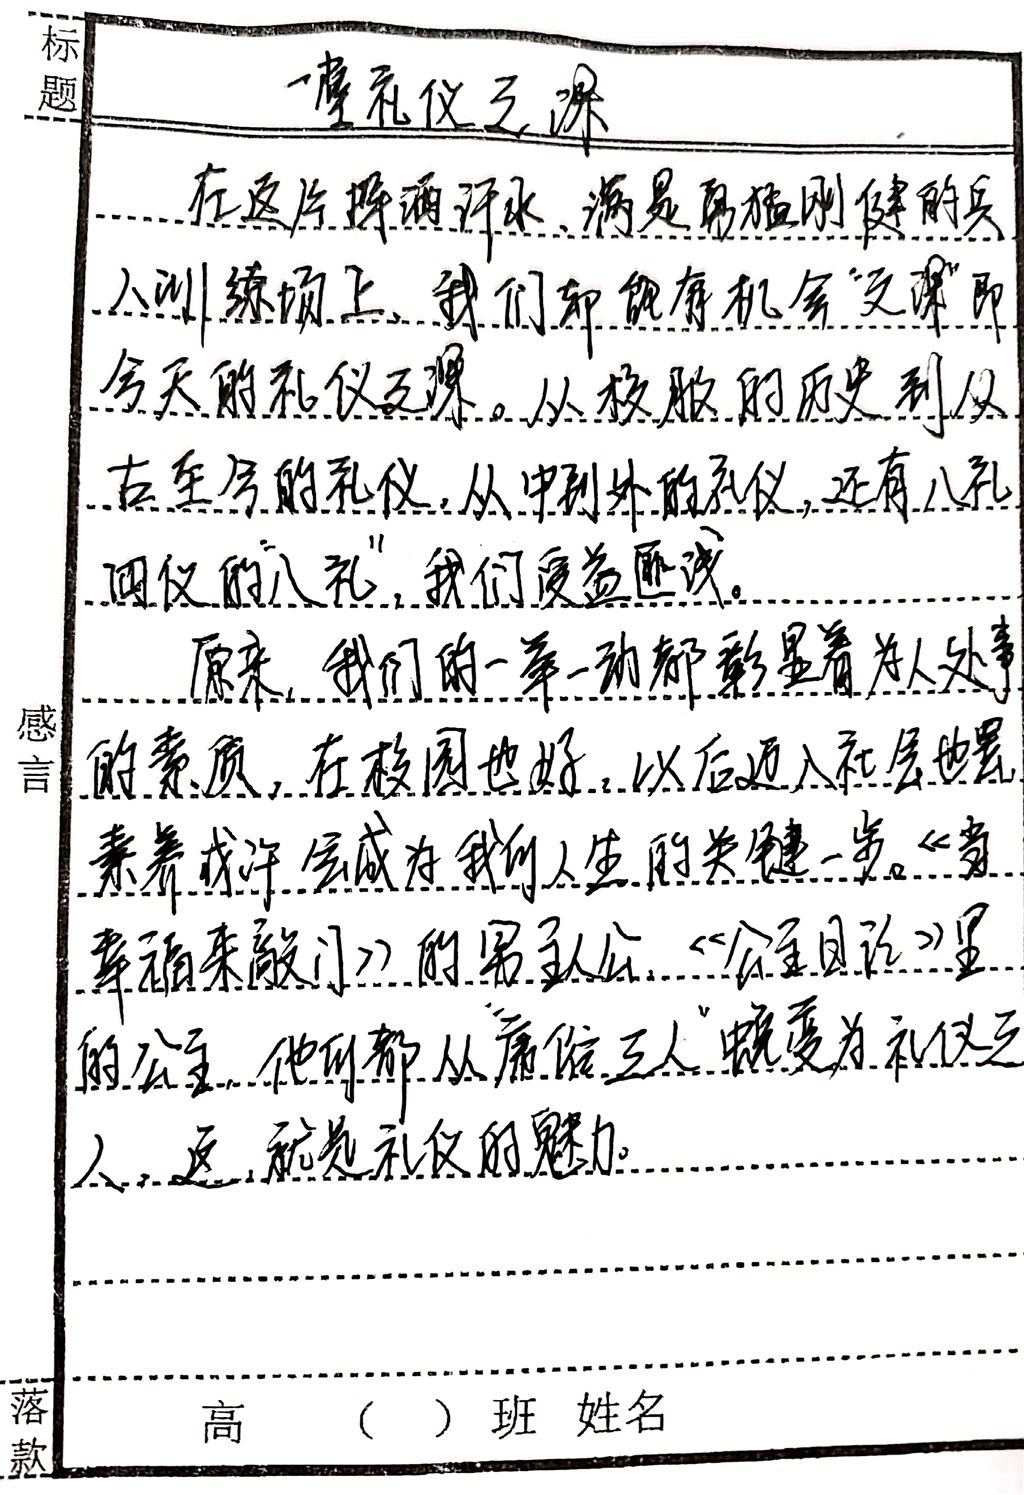 标题
一堂礼仪之课
在这片挥洒汗水、满是勇猛刚健的兵
人训练场上,我们却能有机会“文课”即
今天的礼仪之课。从校服的历史到从
古至今的礼仪,从中到外的礼仪,还有八礼
四仪的“八礼”,我们受益匪浅。
原来,我们的一举一动都彰显着为人处事
感言
的素质,在校园也好,以后迈入社会也罢
素养或许会成为我们人生的关键一步。《当
幸福来敲门》的男主人公、《公主日记》里
的公主,他们都从“庸俗之人”蜕变为礼仪之
人,这,就是礼仪的魅力。
落款
高 ( ) 班 姓名